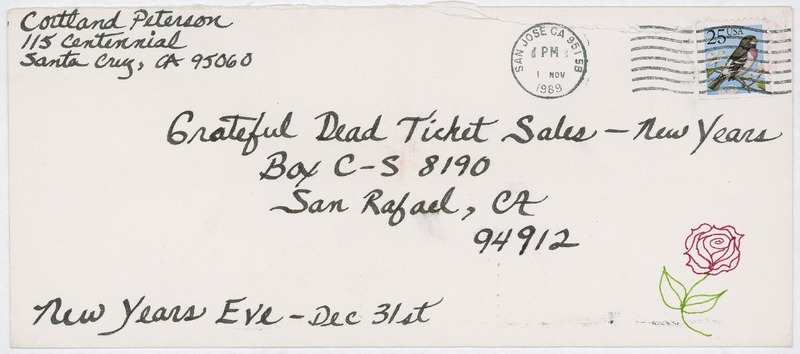 Cortland Peterson
115 Centennial
Santa Cruz, CA 95060
SAN JOSE CA 951 5B
PM
1 NOV
1989
25 USA
Grateful Dead Ticket Sales – New Years
Box C-S 8190
San Rafael, CA
94912
New Years Eve – Dec 31st